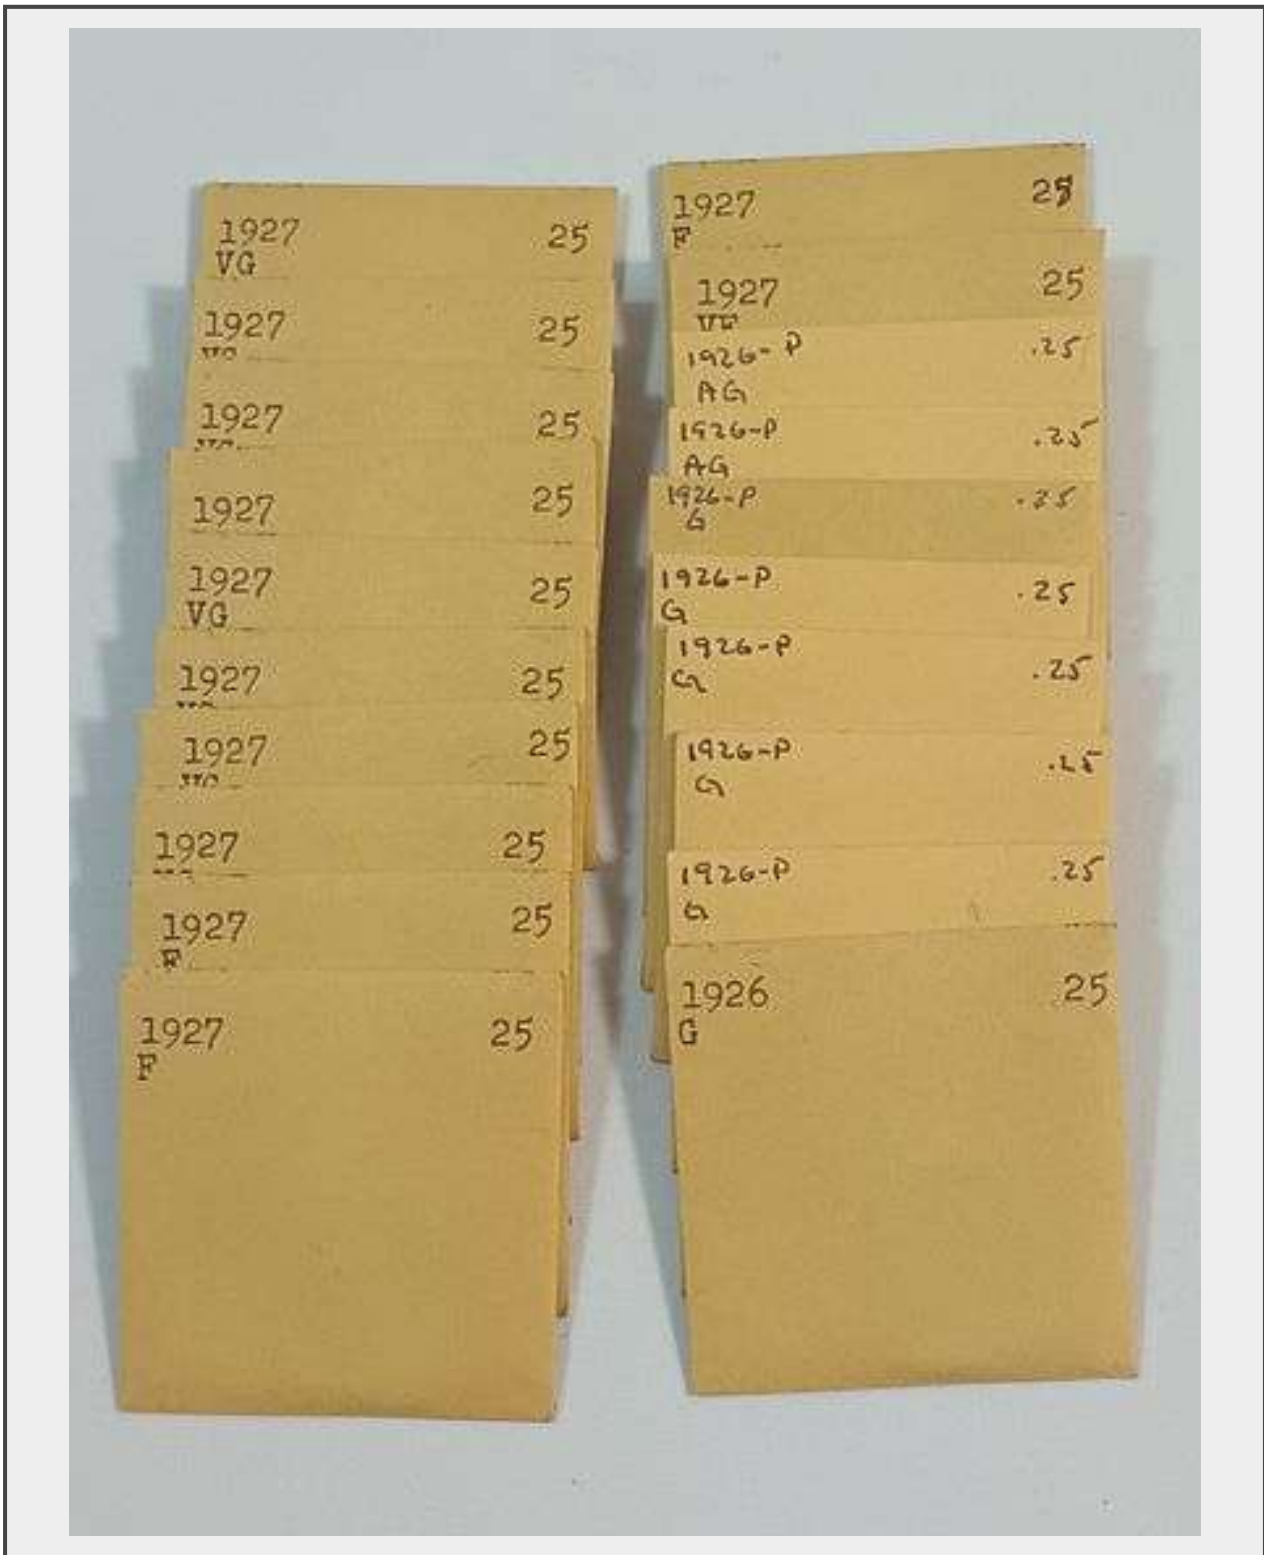 1927 25
VG
1927 25
1927 25
1927 25
1927 25
VG
1927 25
1927 25
1927 25
1927 25
F
1927 25
F
1927 25
F
1927 25
VF
1926-P .25
AG
1926-P .25
AG
1926-P .25
G
1926-P .25
G
1926-P .25
G
1926-P .25
G
1926-P .25
G
1926 25
G